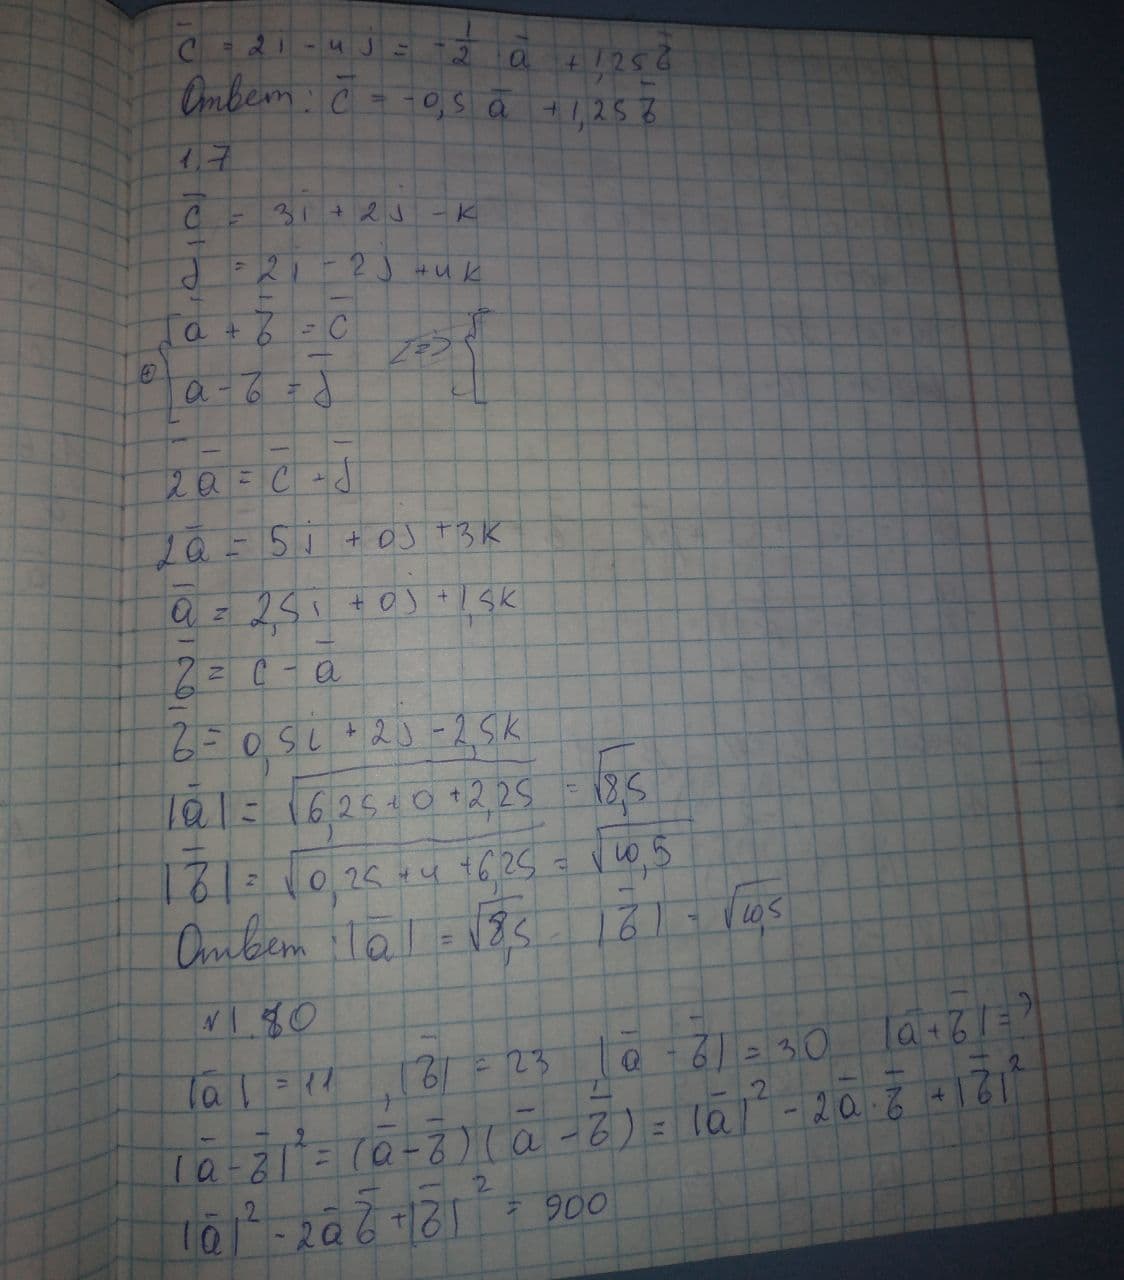 c̄ = 2i - 4j = -1/2 · ā + 1,25 b̄
Ответ: c̄ = -0,5 ā + 1,25 b̄
1.7
c̄ = 3i + 2j - k
d̄ = 2i - 2j + 4k
⊕ { ā + b̄ = c̄ <=> {
ā - b̄ = d̄
2ā = c̄ + d̄
2ā = 5i + 0j + 3k
ā = 2,5i + 0j + 1,5k
b̄ = c - ā
b̄ = 0,5i + 2j - 2,5k
|ā| = √(6,25 + 0 + 2,25) = √8,5
|b̄| = √(0,25 + 4 + 6,25) = √10,5
Ответ: |ā| = √8,5 |b̄| = √10,5
№1.80
|ā| = 11, |b̄| = 23, |ā - b̄| = 30 |ā + b̄| = ?
|ā - b̄|² = (ā - b̄)(ā - b̄) = |ā|² - 2ā·b̄ + |b̄|²
|ā|² - 2āb̄ + |b̄|² = 900